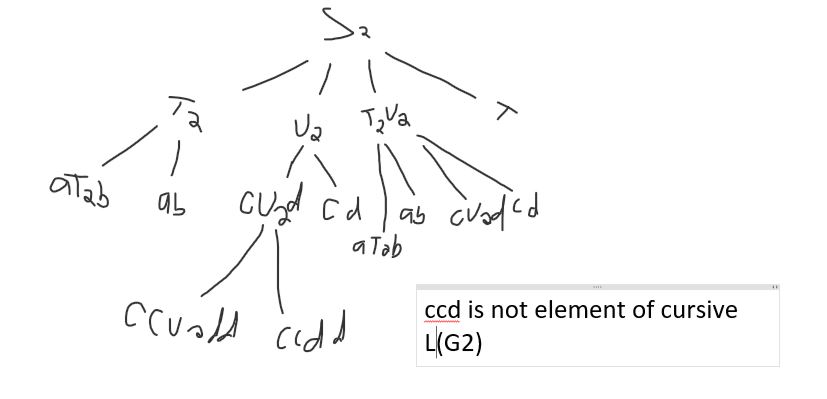 S₂
T₂ U₂ T₂U₂ λ
aT₂b ab CU₂d Cd aT₂b ab CU₂d Cd
CCU₂dd CCdd
ccd is not element of cursive
L(G2)